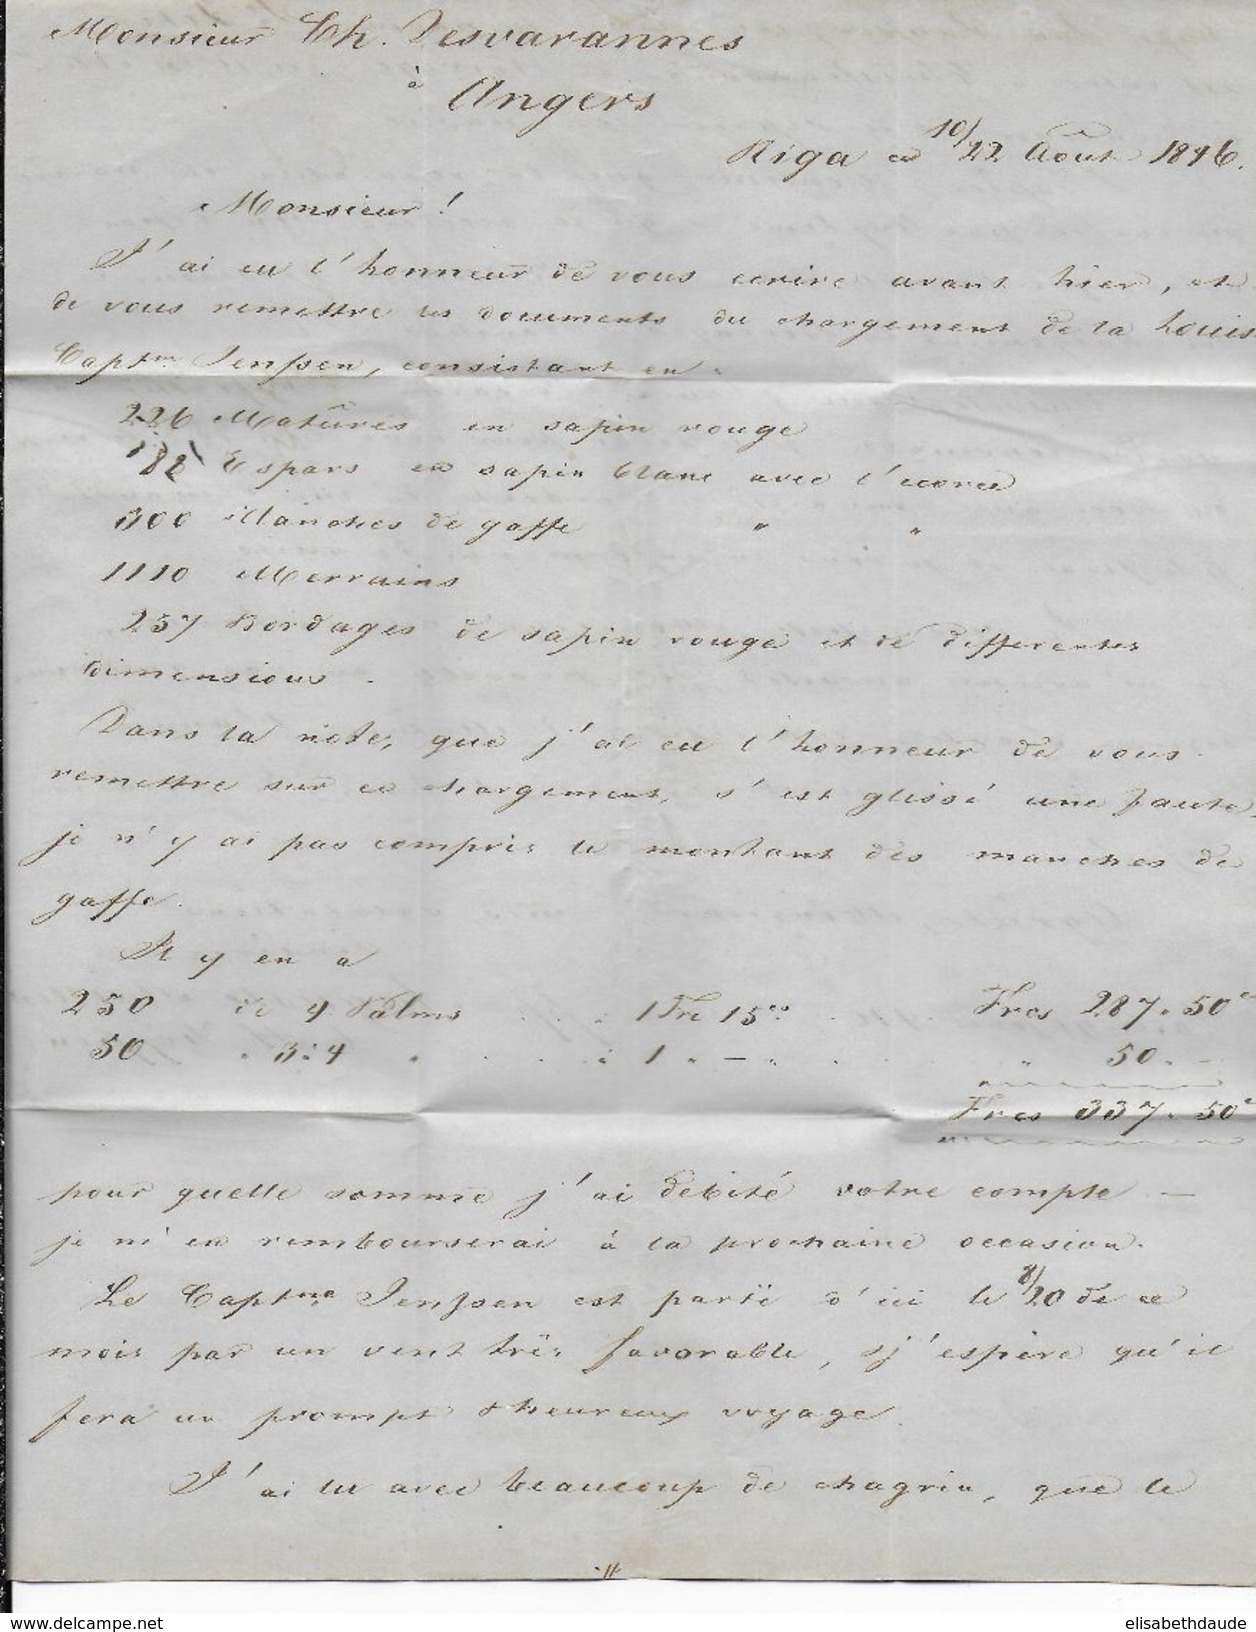 Monsieur Ch. Desvarannes
à
Angers
Riga ce 10/22 Août 1846.
Monsieur!
J'ai eu l'honneur de vous ecrire avant hier, et
de vous remettre les documents du chargement de la Louise
Captm. Jenssen, consistant en:
226 Matûres en sapin rouge
188 Espars en sapin blanc avec l'ecorce
300 Manches de gaffe " "
1110 Merrains
257 Bordages de sapin rouge et de differentes
dimensions.
Dans la note, que j'ai eu l'honneur de vous
remettre sur ce chargement, s'est glissé une faute,
je n'y ai pas compris le montant des manches de
gaffe.
Il y en a
250 de 4 Palms . . . à 1 Fr 15cs . . . Frcs 287. 50c
50 " 3:4 " . . . à 1 " — " . . . " 50. —
Frcs 337. 50c
pour quelle somme j'ai debité votre compte —
je m'en rembourserai à la prochaine occasion.
Le Captne Jenssen est parti d'ici le 8/20 de ce
mois par un vent très favorable, & j'espère qu'il
fera un prompt & heureux voyage.
J'ai lu avec beaucoup de chagrin, que le
www.delcampe.net
elisabethdaude